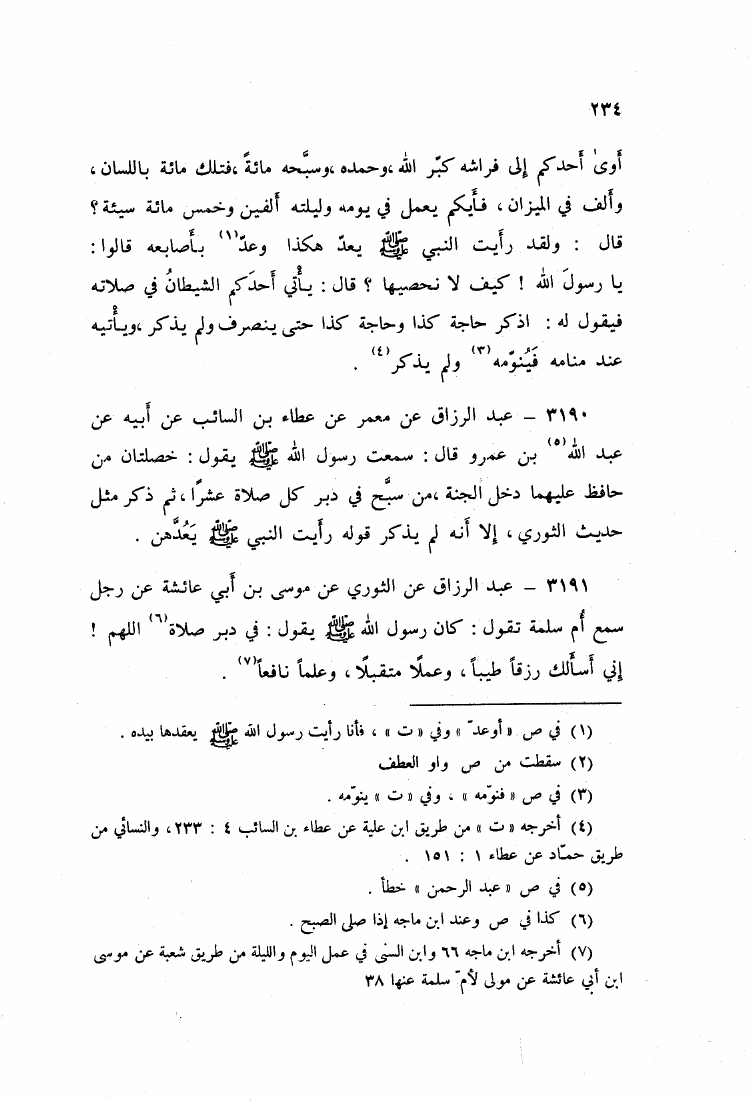 ٢٣٤
أَوىٰ أَحدكم إلى فراشه كبّر الله ،وحمده ،وسبَّحه مائةً ،فتلك مائة باللسان ،
وأَلف في الميزان ، فأَيكم يعمل في يومه وليلته أَلفين وخمس مائة سيئة ؟
قال : ولقد رأَيت النبي ﷺ يعدّ هكذا وعدّ(١) بأَصابعه قالوا :
يا رسولَ الله ! كيف لا نحصيها ؟ قال : يأْتي أَحدَكم الشيطانُ في صلاته
فيقول له : اذكر حاجة كذا وحاجة كذا حتى ينصرف ولم يذكر ،ويأْتيه
عند منامه فَيُنوّمه(٣) ولم يذكر(٤) .
٣١٩٠ – عبد الرزاق عن معمر عن عطاء بن السائب عن أَبيه عن
عبد الله(٥) بن عمرو قال : سمعت رسول الله ﷺ يقول : خصلتان من
حافظ عليهما دخل الجنة ،من سبَّح في دبر كل صلاة عشرًا ،ثم ذكر مثل
حديث الثوري ، إلا أَنه لم يذكر قوله رأَيت النبي ﷺ يَعُدَّهن .
٣١٩١ – عبد الرزاق عن الثوري عن موسى بن أَبي عائشة عن رجل
سمع أُم سلمة تقول : كان رسول الله ﷺ يقول : في دبر صلاة(٦) اللهم !
إني أَسأَلك رزقاً طيباً ، وعملًا متقبلًا ، وعلماً نافعاً(٧) .
(١) في ص « أوعدّ » وفي « ت » ، فأنا رأيت رسول الله ﷺ يعقدها بيده .
(٢) سقطت من ص واو العطف
(٣) في ص « فنوّمه » ، وفي « ت » ينوّمه .
(٤) أخرجه « ت » من طريق ابن علية عن عطاء بن السائب ٤ : ٢٣٣ ، والنسائي من
طريق حمّاد عن عطاء ١ : ١٥١ .
(٥) في ص « عبد الرحمن » خطأ .
(٦) كذا في ص وعند ابن ماجه إذا صلى الصبح .
(٧) أخرجه ابن ماجه ٦٦ وابن السنى في عمل اليوم والليلة من طريق شعبة عن موسى
ابن أبي عائشة عن مولى لأمّ سلمة عنها ٣٨